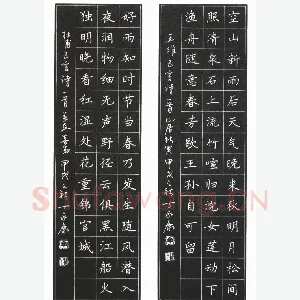 空山新雨后天气晚来秋明月松间
照清泉石上流竹喧归浣女莲动下
渔舟随意春芳歇王孙自可留
王维五言诗一首山居秋暝甲戌
好雨知时节当春乃发生随风潜入
夜润物细无声野径云俱黑江船火
独明晓看红湿处花重锦官城
杜甫五言诗一首春夜喜雨甲戌